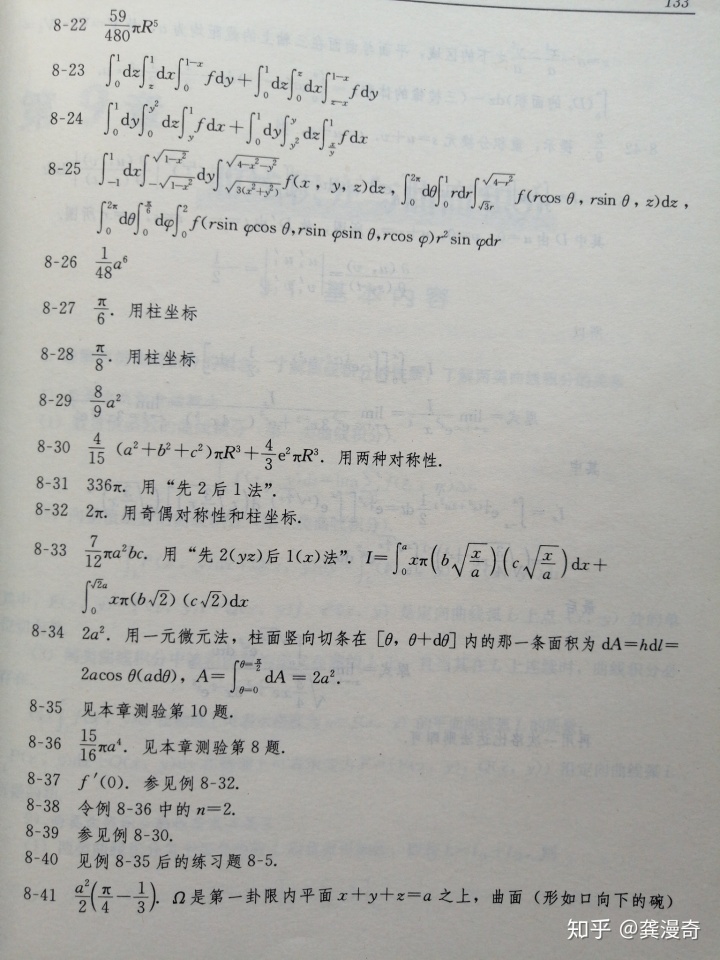 133
8-22 59/480 πR⁵
8-23 ∫₀¹dz∫_z¹dx∫₀^{1-x} fdy+∫₀¹dz∫₀^z dx∫_{z-x}^{1-x} fdy
8-24 ∫₀¹dy∫₀^{y²}dz∫_y¹ fdx+∫₀¹dy∫_{y²}^y dz∫_{z/y}¹ fdx
8-25 ∫₋₁¹dx∫_{-√(1-x²)}^{√(1-x²)}dy∫_{√(3(x²+y²))}^{√(4-x²-y²)} f(x, y, z)dz, ∫₀^{2π}dθ∫₀¹rdr∫_{√3r}^{√(4-r²)} f(rcos θ, rsin θ, z)dz,
∫₀^{2π}dθ∫₀^{π/6}dφ∫₀² f(rsin φcos θ,rsin φsin θ,rcos φ)r²sin φdr
8-26 1/48 a⁶
8-27 π/6. 用柱坐标
8-28 π/8. 用柱坐标
8-29 8/9 a²
8-30 4/15 (a²+b²+c²)πR⁵+4/3 e²πR³. 用两种对称性.
8-31 336π. 用“先2后1法”.
8-32 2π. 用奇偶对称性和柱坐标.
8-33 7/12 πa²bc. 用“先2(yz)后1(x)法”. I=∫₀^a xπ(b√(x/a))(c√(x/a))dx+
∫₀^{√2a} xπ(b√2)(c√2)dx
8-34 2a². 用一元微元法，柱面竖向切条在[θ, θ+dθ]内的那一条面积为 dA=hdl=
2acos θ(adθ), A=∫_{θ=0}^{θ=π/2} dA = 2a².
8-35 见本章测验第10题.
8-36 15/16 πa⁴. 见本章测验第8题.
8-37 f′(0). 参见例8-32.
8-38 令例8-36中的n=2.
8-39 参见例8-30.
8-40 见例8-35后的练习题8-5.
8-41 a²/2(π/4-1/3). Ω是第一卦限内平面x+y+z=a之上，曲面（形如口向下的碗）
知乎 @龚漫奇